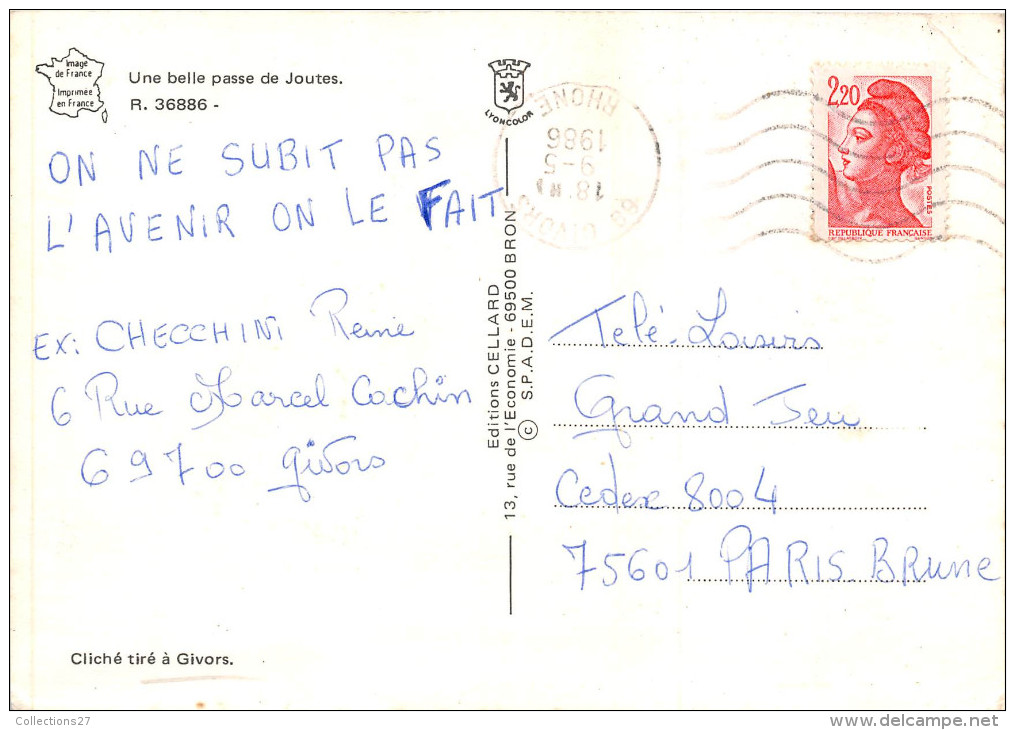 Image
de France
Imprimée
en France
Une belle passe de Joutes.
R. 36886 -
ON NE SUBIT PAS
L'AVENIR ON LE FAIT
EX: CHECCHINI Reine
6 Rue Marcel Cachin
69700 Givors
Cliché tiré à Givors.
LYONCOLOR
Editions CELLARD
13, rue de l'Economie - 69500 BRON
© S.P.A.D.E.M.
69 GIVORS
18 H
9-5
1986
RHONE
2,20
POSTES
REPUBLIQUE FRANÇAISE
Télé-Loisirs
Grand Jeu
Cedex 8004
75601 PARIS BRune
Collections27
delcampe.net